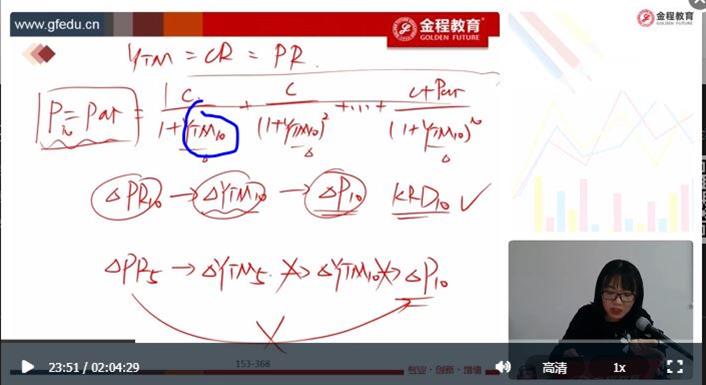 www.gfedu.cn
金程教育
GOLDEN FUTURE
金程教育
GOLDEN FUTURE
YTM = CR = PR.
P₁₀ = Par = C/(1+YTM₁₀) + C/(1+YTM₁₀)² + ... + C+Par/(1+YTM₁₀)¹⁰
△PR₁₀ → △YTM₁₀ → △P₁₀ KRD₁₀ ✓
△PR₅ → △YTM₅ → △YTM₁₀ → △P₁₀
23:51 / 02:04:29
153-368
专业·创新·增值
高清
1x